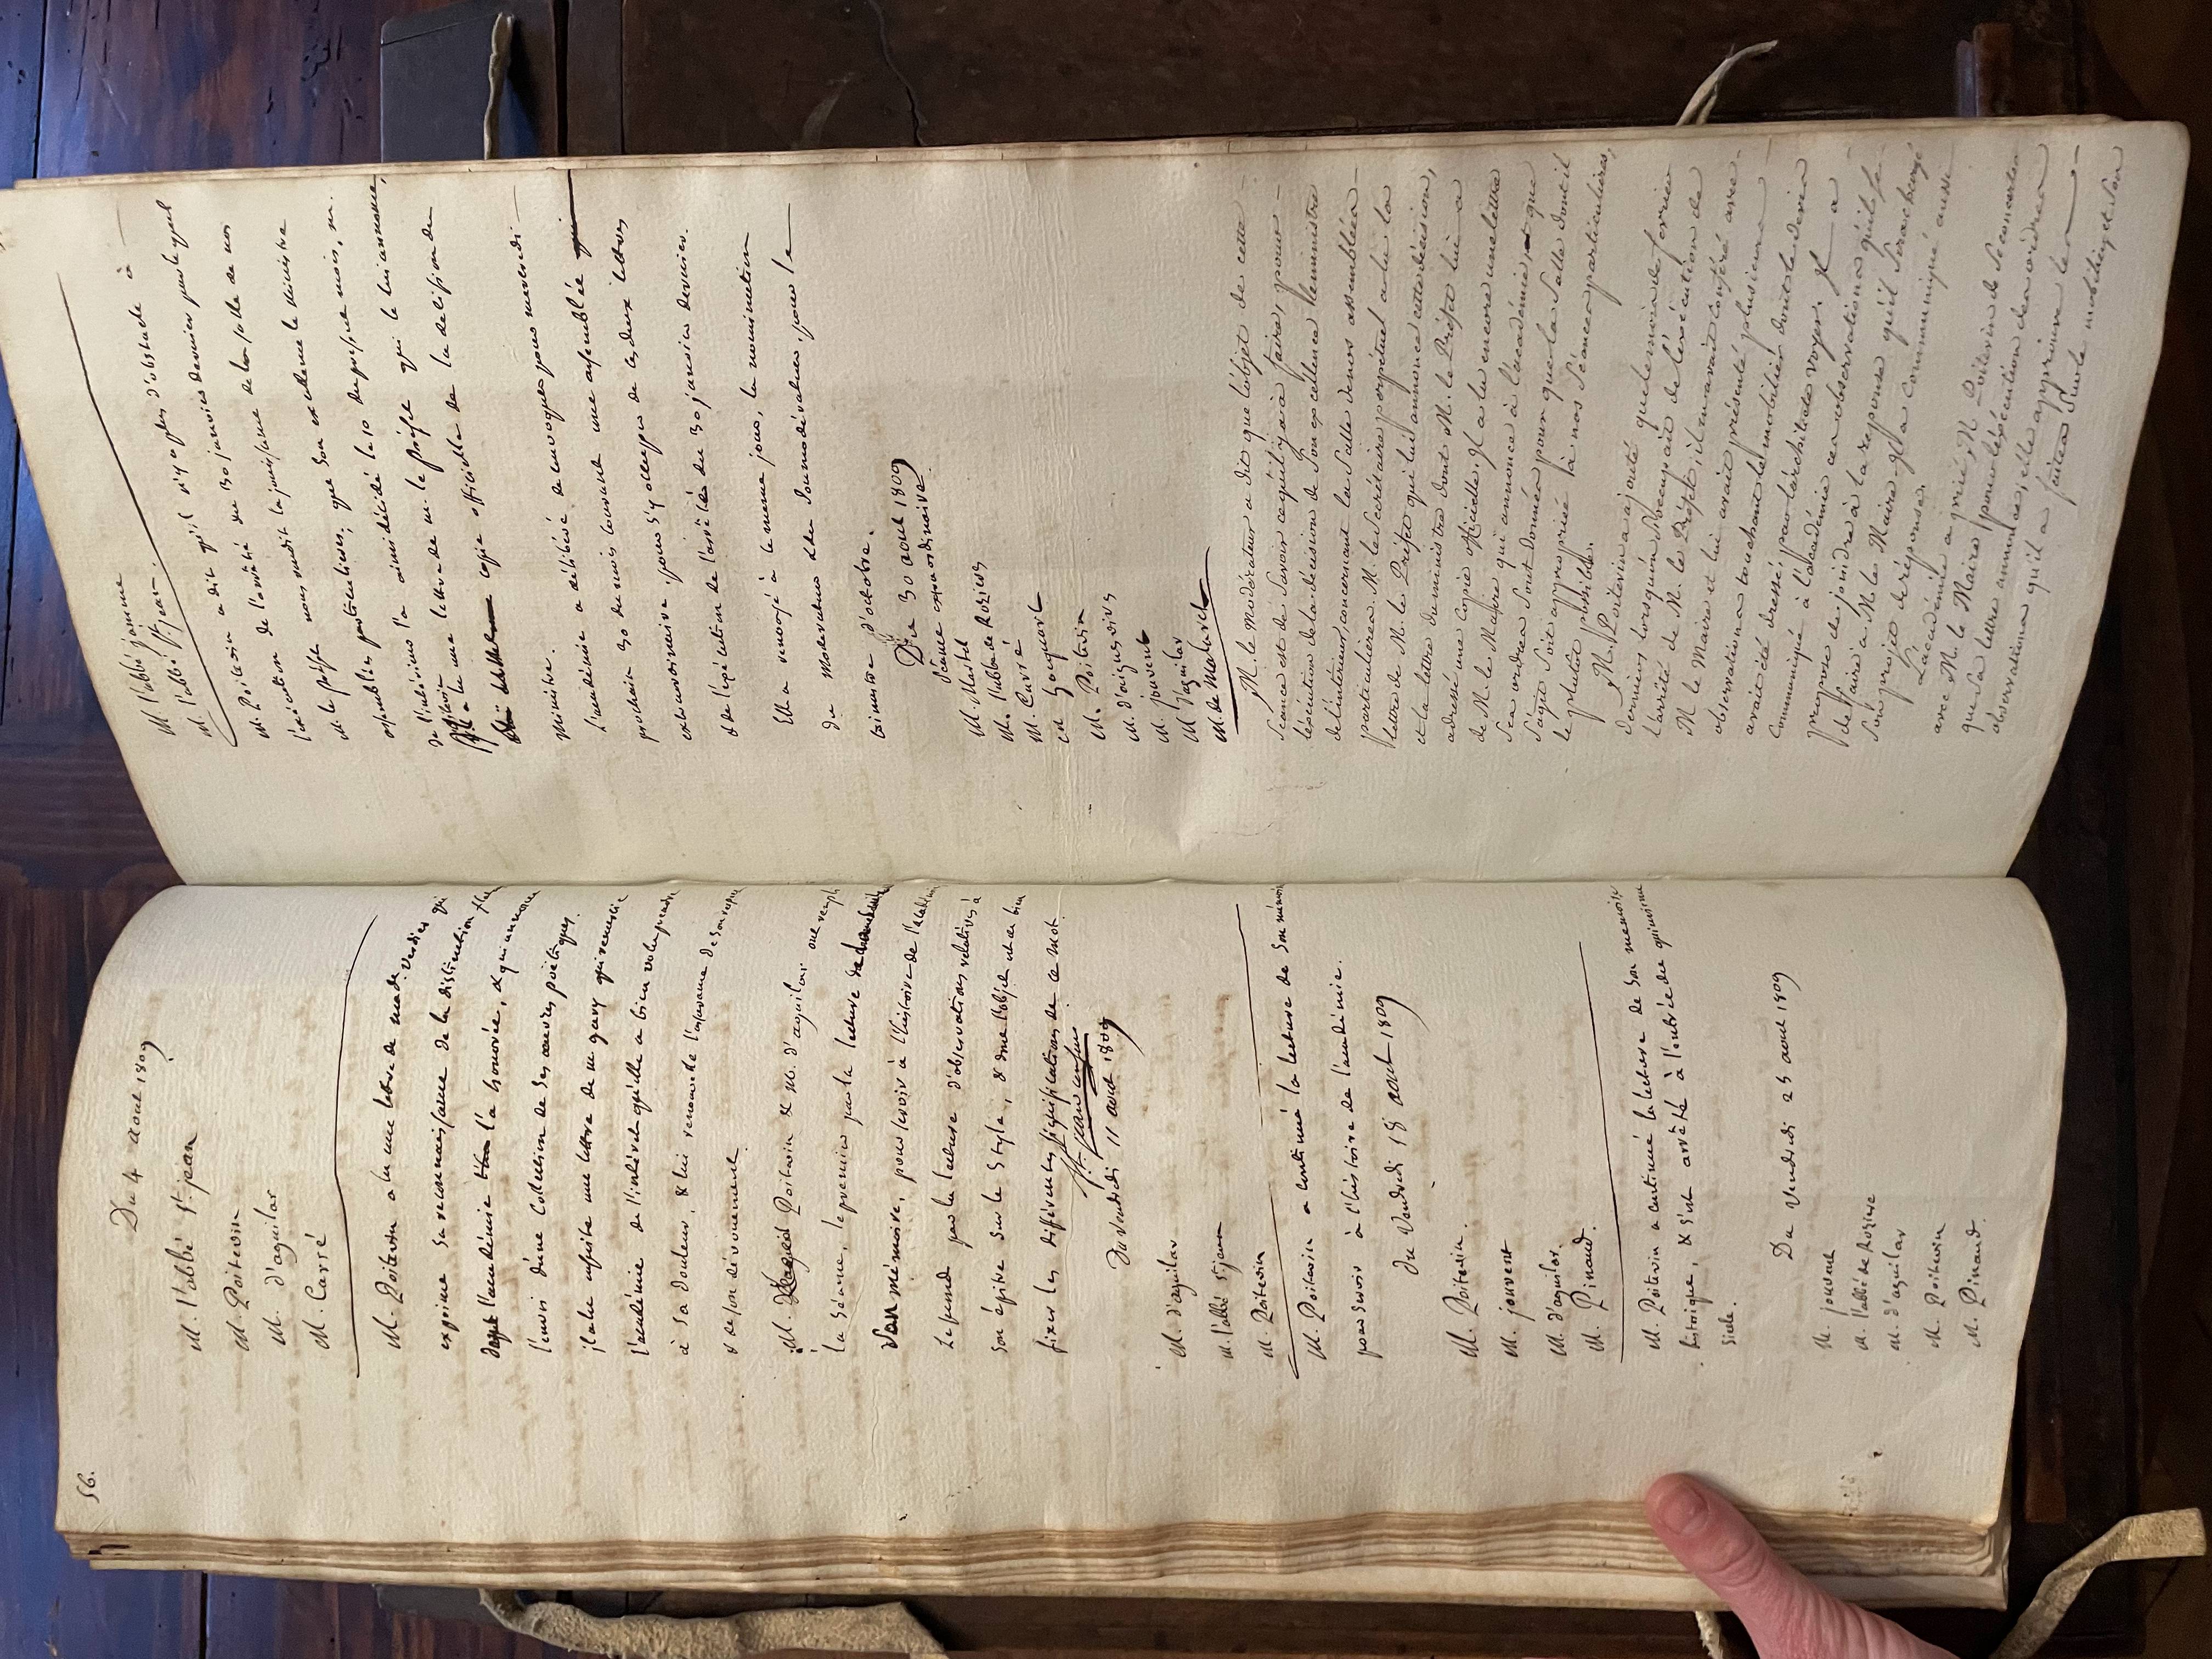 56.
Du 4 aout 1809
M. l'abbé St. jean
M. Poitevin
M. d'aguilar
M. Carré
M. Poitevin a lu une lettre de mad.e Verdier qui
exprime sa reconnaissance de la distinction
l'académie l'a honorée, & qui annonce
l'envoi d'une Collection de ses œuvres poëtiques.
il a lu ensuite une lettre de m. gary qui remercie
l'académie de l'intérêt qu'elle a bien voulu prendre
à sa douleur, & lui renouvelle l'assurance de son respect
& de son dévouement.
M. Poitevin & M. d'aguilar ont rempli
la Séance, le premier par la lecture
d'un mémoire, pour servir à l'histoire de l'académie
Le second par la lecture d'observations relatives à
Son épitre Sur le Style, & dont l'objet est de bien
fixer les différentes significations de ce mot.
Du vendredi 11 aout 1809
M. d'aguilar
M. l'abbé St jean
M. Poitevin
M. Poitevin a continué la lecture de Son mémoire
pour servir à l'histoire de l'académie.
Du Vendredi 18 aout 1809
M. Poitevin.
M. jouvent
M. d'aguilar.
M. Pinaud.
M. Poitevin a continué la lecture de Son memoire
historique, & s'est arrêté à l'entrée du quinzieme
Siecle.
Du Vendredi 25 aout 1809
M. jouvent
M. l'abbé de Rozieres
M. d'aguilar
M. Poitevin
M. Pinaud.
M l'abbé jamme
M. l'abbé St. jean.
M. Poitevin a dit qu'il n'y a plus d'obstacle à
l'exécution de l'arrêté du 30 janvier dernier par lequel
M. le préfet nous rendit la jouissance de la salle de nos
assemblées particulieres; que Son excellence le Ministre
de l'intérieur l'a ainsi décidé le 10 du présent mois,
a lu une lettre de M. le préfet qui le lui annonce,
copie officielle de la décision du
Ministre.
L'académie a délibéré de convoquer pour mercredi
prochain 30 du mois courant une assemblée
extraordinaire pour s'y occuper de ces deux lettres
& de l'exécution de l'arrêté du 30 janvier dernier.
Elle a renvoyé à le meme jour, la nomination
du Moderateur & du Sousmodérateur, pour le
trimestre d'octobre.
Du 30 aout 1809
Séance extraordinaire
M. Martel
M. l'abbé de Rozieres
M. Carré
M. Poitevin
M. jouvent
M d'aguilar
M. le modérateur a dit que l'objet de cette
Séance est de Savoir ce qu'il y a à faire, pour
l'exécution de la décision de Son excellence le ministre
de l'intérieur, concernant la Salle de nos assemblées
particulieres. M. le Secrétaire perpétuel a lu la
lettre de M. le Préfet qui lui annonce cette décision,
et la lettre du ministre dont M. le Préfet lui a
adressé une Copie officielle. Il a lu encore une lettre
de M. le Maire qui annonce à l'académie, que
Ses ordres Sont donnés pour que la Salle dont il
s'agit Soit appropriée à nos Séances particulieres,
le plutôt possible.
M. Poitevin a ajouté que le mois de février
dernier, lorsqu'on S'occupait de l'exécution de
l'arrêté de M. le Préfet, il en avait conféré avec
M. le Maire et lui avait présenté plusieurs
observations touchant le mobilier dont le devis
avait été dressé, par l'architecte voyer. Il a
Communiqué à l'académie ces observations qu'il se
propose de joindre à la reponse qu'il Sera chargé
de faire à M. le Maire. Il a Communiqué aussi
Son projet de réponse.
L'académie a prié M. Poitevin de Se concerter
avec M. le Maire pour l'exécution des ordres
que Sa lettre annonce; elle approuve les
observations qu'il a faites Sur le mobilier, et Son